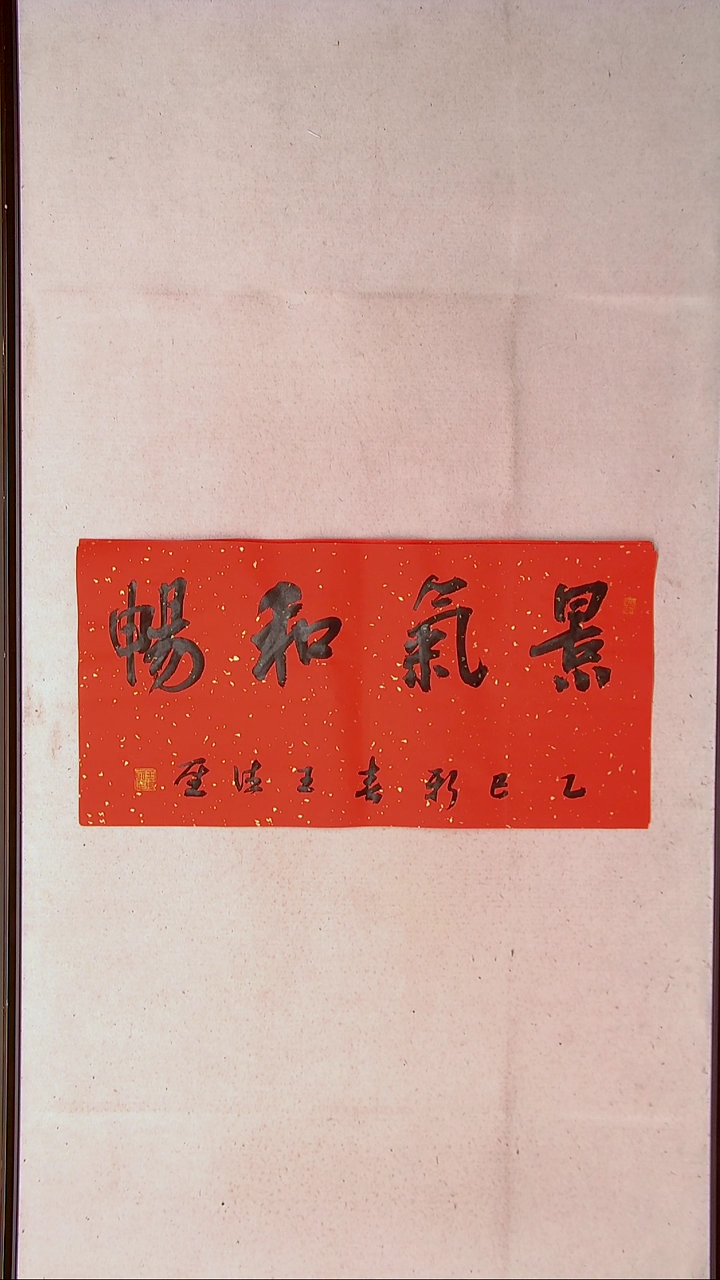 景氣和暢
乙巳新春王